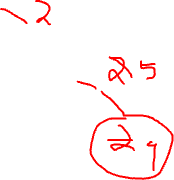 2
25
29